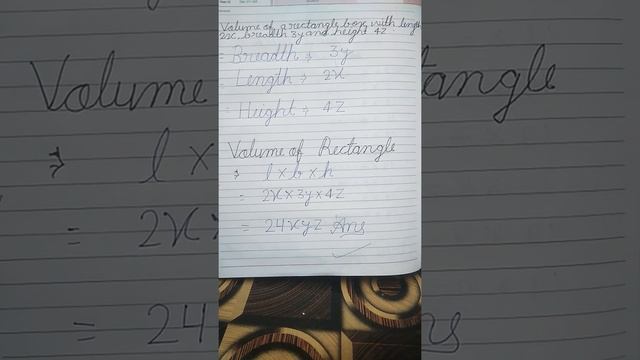 Volume of a rectangle box with length
2x, breadth 3y and height 4z
= Breadth → 3y
= Length → 2x
= Height → 4z
Volume of Rectangle
→ l × b × h
= 2x × 3y × 4z
= 24xyz Ans